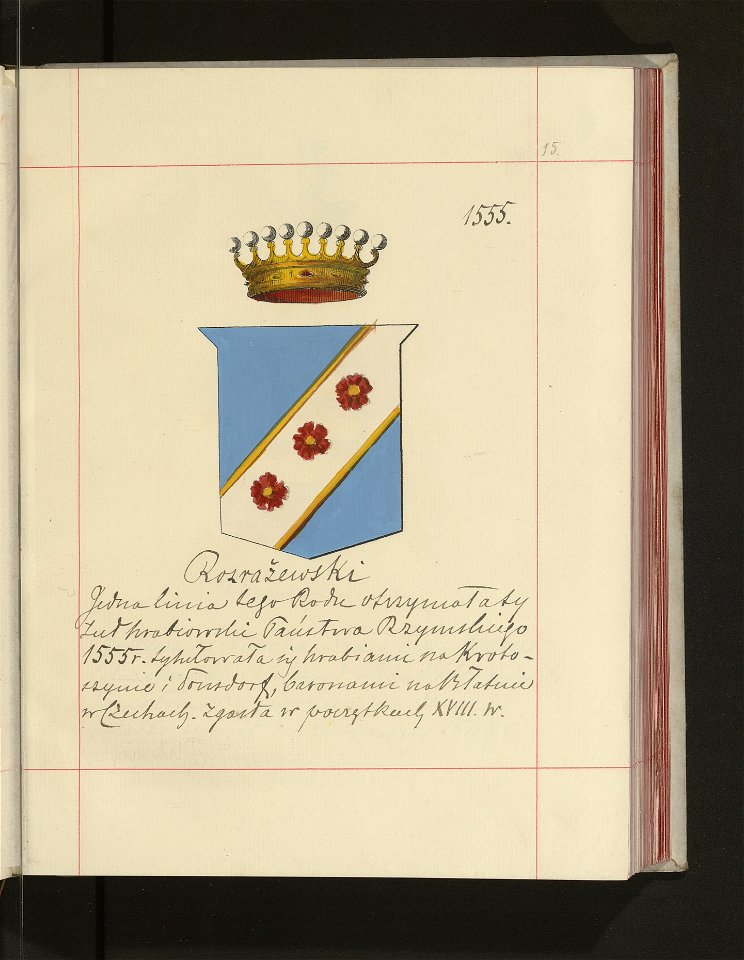 15.
1555.
Rozrażewski
Jedna linia tego Rodu otrzymała ty
tuł hrabiowski Państwa Rzymskiego
1555r. tytułowała się hrabiami na Kroto-
szynie i Tomsdorf, baronami na Błatnie
w Czechach. Zgasła w początkach XVIII. w.